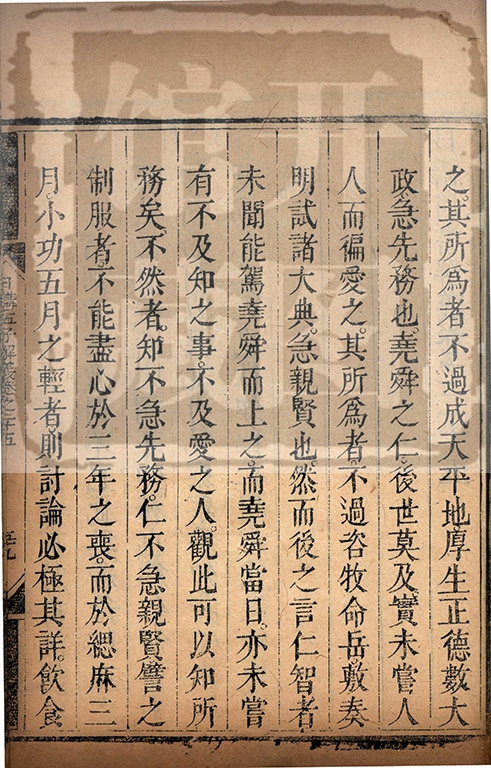 之其所爲者不過成天平地厚生正德數大
政急先務也堯舜之仁後世莫及實未嘗人
人而徧愛之其所爲者不過咨牧命岳敷奏
明試諸大典急親賢也然而後之言仁智者
未聞能駕堯舜而上之而堯舜當日亦未嘗
有不及知之事不及愛之人觀此可以知所
務矣不然者知不急先務仁不急親賢譬之
制服者不能盡心於三年之喪而於緦麻三
月小功五月之輕者則討論必極其詳飲食